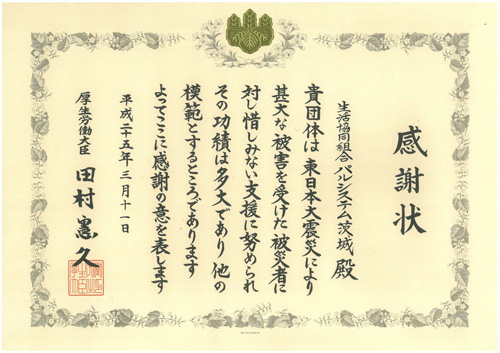 感謝状
生活協同組合パルシステム茨城 殿
貴団体は東日本大震災により
甚大な被害を受けた被災者に
対し惜しみない支援に努められ
その功績は多大であり他の
模範とするところであります
よってここに感謝の意を表します
平成二十五年三月十一日
厚生労働大臣 田村憲久